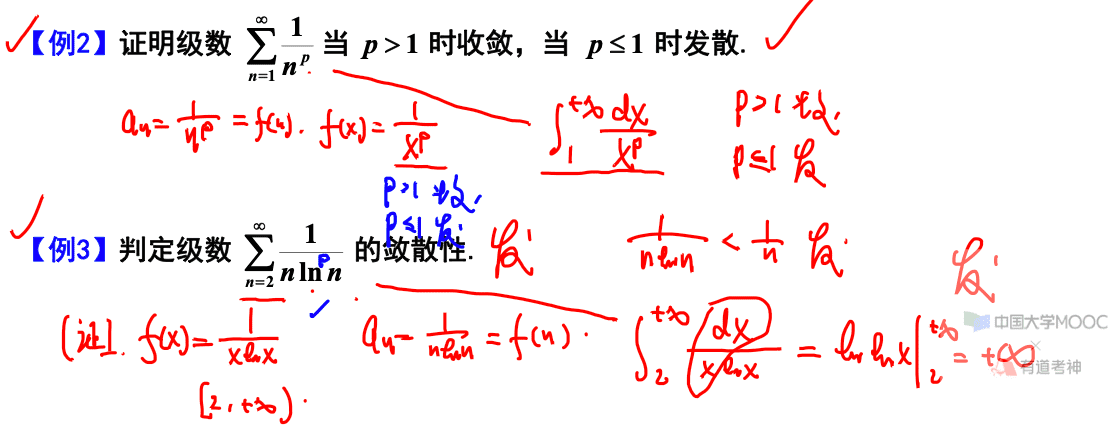 【例2】证明级数 ∑_{n=1}^{∞} 1/n^p 当 p>1 时收敛，当 p≤1 时发散.
a_n = 1/n^p = f(n). f(x) = 1/x^p ∫_1^{+∞} dx/x^p p>1 收.
p≤1 发
p>1 收.
p≤1 发.
【例3】判定级数 ∑_{n=2}^{∞} 1/(n ln^p n) 的敛散性. 发. 1/(n ln n) < 1/n 发. 发.
[证]. f(x) = 1/(x ln x) a_n = 1/(n ln n) = f(n). ∫_2^{+∞} dx/(x ln x) = ln ln x |_2^{+∞} = +∞
[2, +∞).
中国大学MOOC
×
有道考神